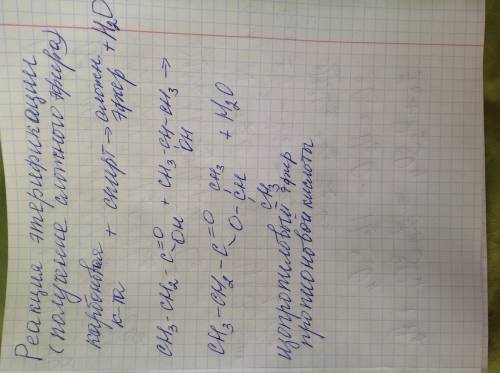 Реакция этерификации
(получение сложного эфира)
карбоновая + спирт → сложн. + H₂O
к-та эфир
CH₃-CH₂-C=O + CH₃-CH-CH₃ →
OH OH
CH₃-CH₂-C=O CH₃ + H₂O
O-CH
CH₃
изопропиловый эфир
пропионовой кислоты